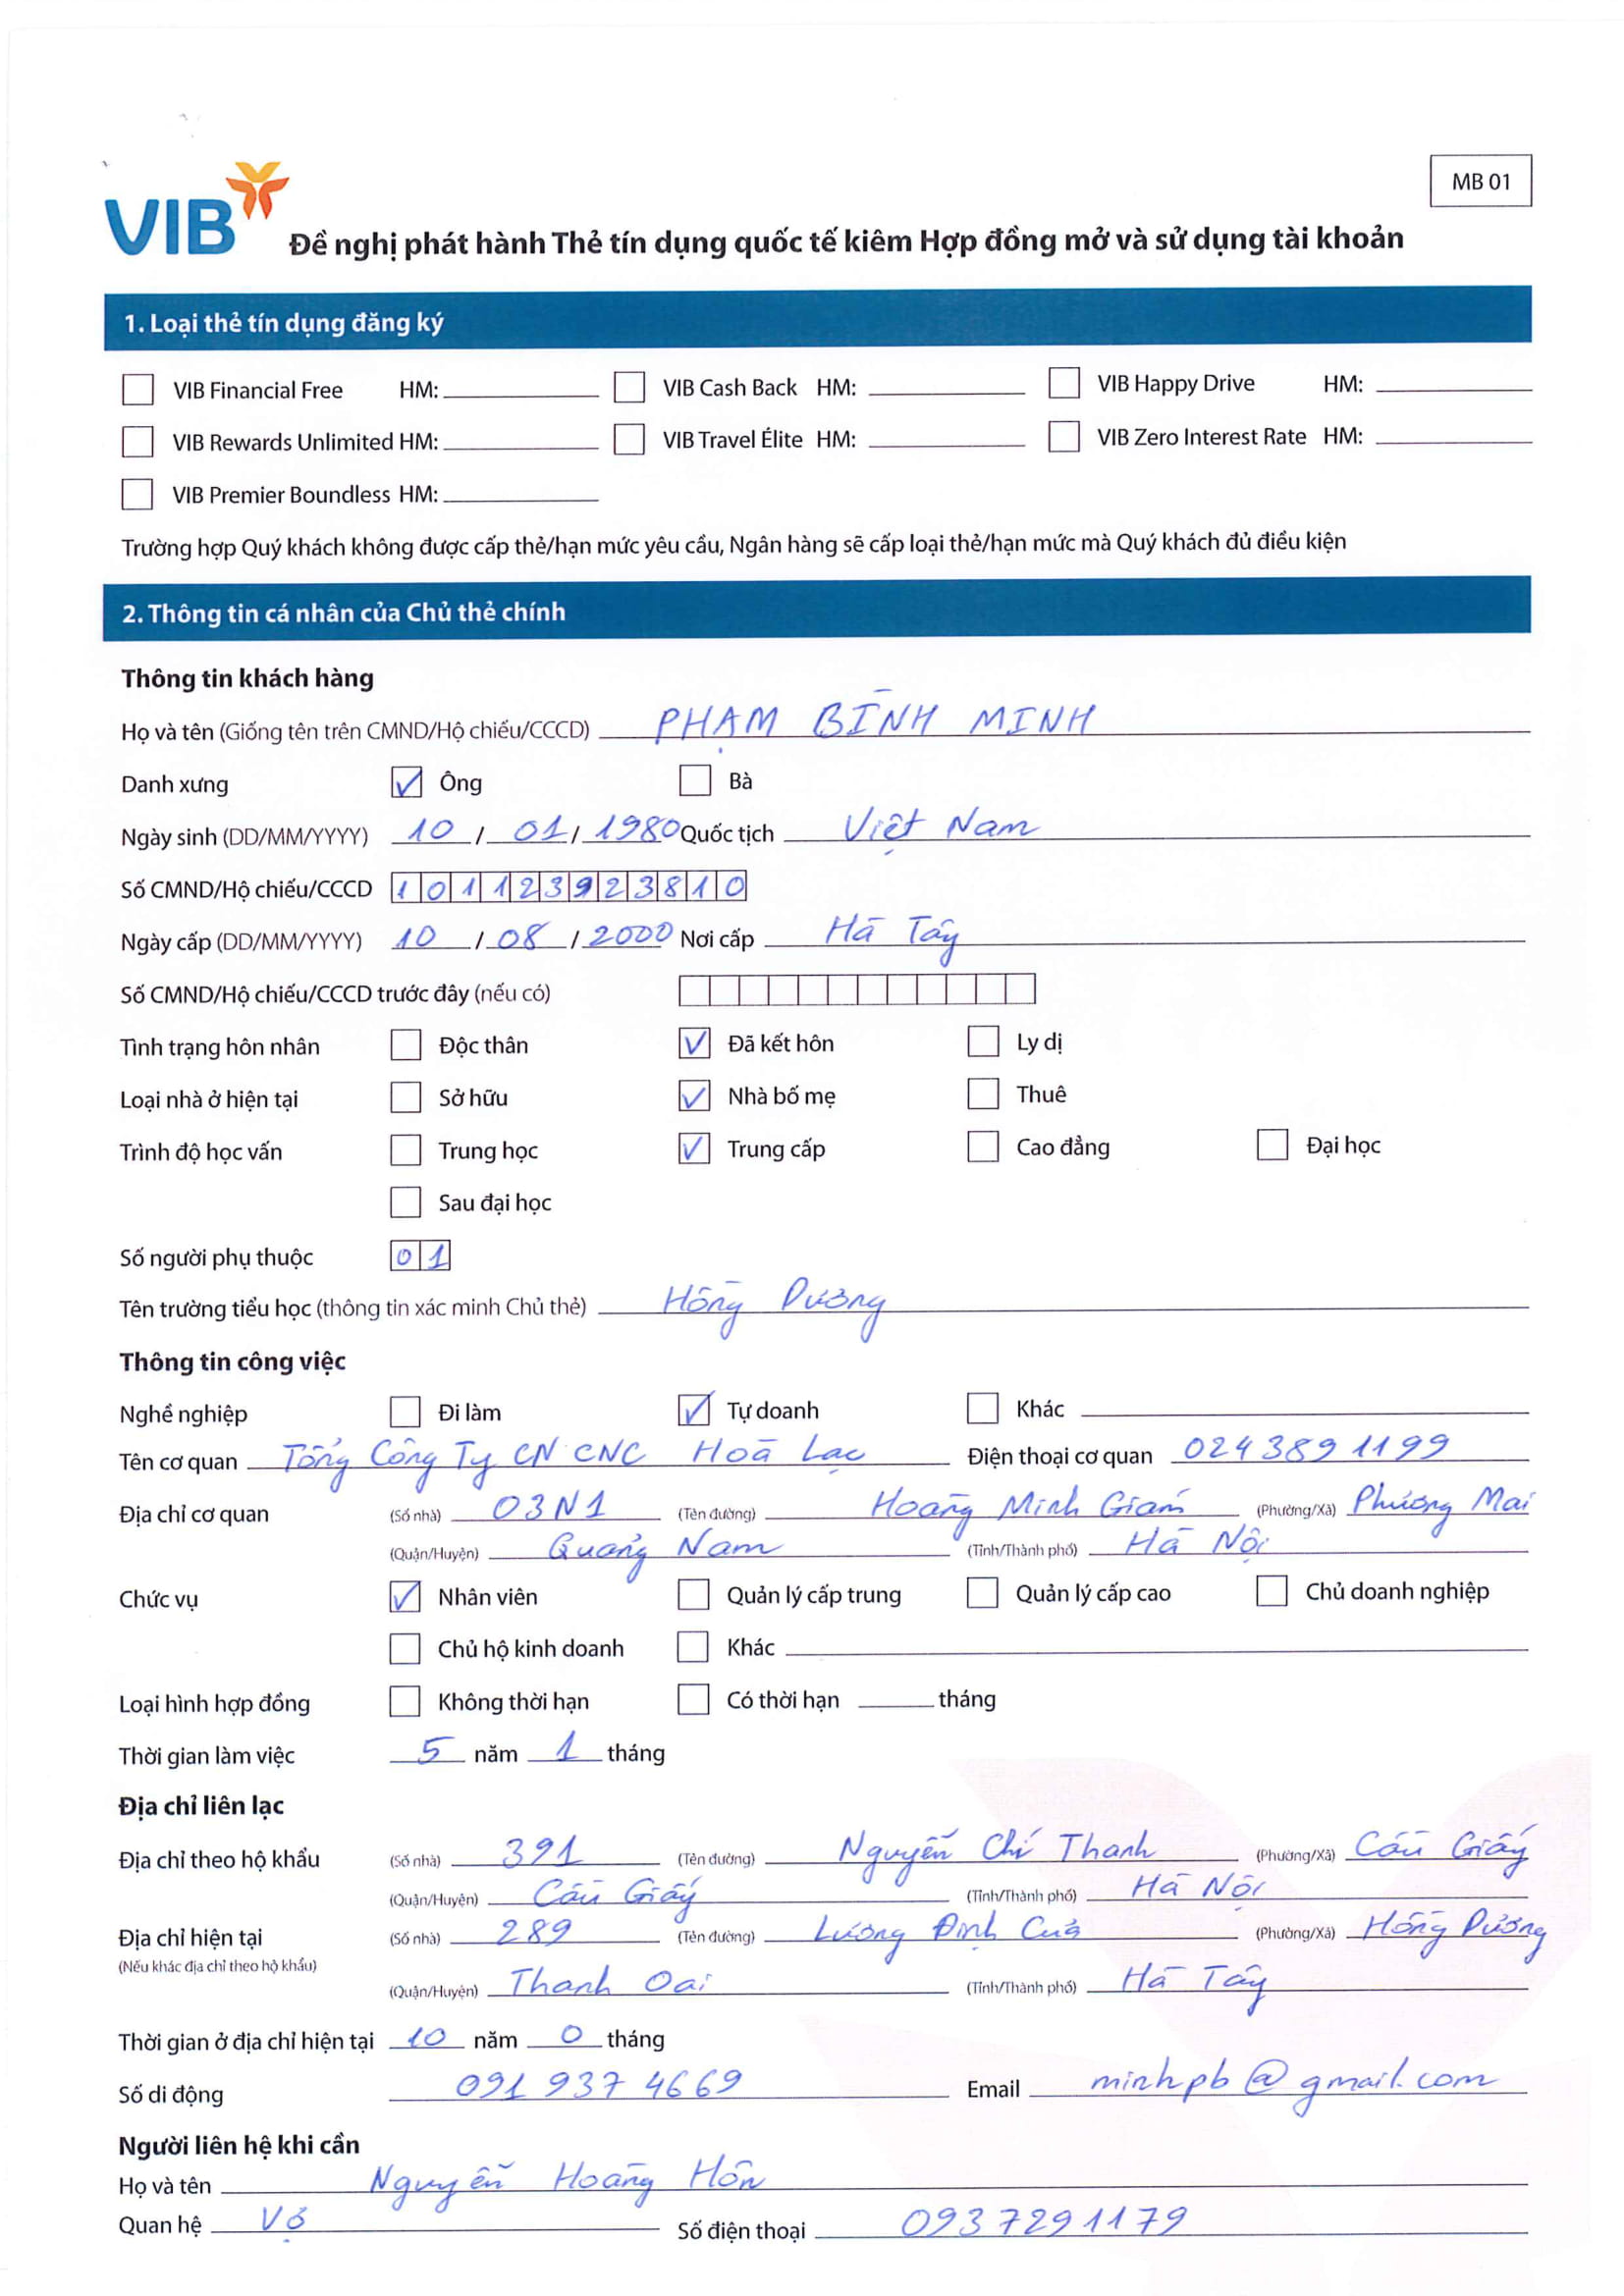 MB 01
VIB
Đề nghị phát hành Thẻ tín dụng quốc tế kiêm Hợp đồng mở và sử dụng tài khoản
1. Loại thẻ tín dụng đăng ký
VIB Financial Free HM: VIB Cash Back HM: VIB Happy Drive HM:
VIB Rewards Unlimited HM: VIB Travel Élite HM: VIB Zero Interest Rate HM:
VIB Premier Boundless HM:
Trường hợp Quý khách không được cấp thẻ/hạn mức yêu cầu, Ngân hàng sẽ cấp loại thẻ/hạn mức mà Quý khách đủ điều kiện
2. Thông tin cá nhân của Chủ thẻ chính
Thông tin khách hàng
Họ và tên (Giống tên trên CMND/Hộ chiếu/CCCD) PHẠM BÌNH MINH
Danh xưng Ông Bà
Ngày sinh (DD/MM/YYYY) 10 / 01 / 1980 Quốc tịch Việt Nam
Số CMND/Hộ chiếu/CCCD 101123923810
Ngày cấp (DD/MM/YYYY) 10 / 08 / 2000 Nơi cấp Hà Tây
Số CMND/Hộ chiếu/CCCD trước đây (nếu có)
Tình trạng hôn nhân Độc thân Đã kết hôn Ly dị
Loại nhà ở hiện tại Sở hữu Nhà bố mẹ Thuê
Trình độ học vấn Trung học Trung cấp Cao đẳng Đại học
Sau đại học
Số người phụ thuộc 01
Tên trường tiểu học (thông tin xác minh Chủ thẻ) Hồng Dương
Thông tin công việc
Nghề nghiệp Đi làm Tự doanh Khác
Tên cơ quan Tổng Công Ty CN CNC Hoà Lạc Điện thoại cơ quan 024 389 1199
Địa chỉ cơ quan (Số nhà) 03N1 (Tên đường) Hoàng Minh Giám (Phường/Xã) Phương Mai
(Quận/Huyện) Quảng Nam (Tỉnh/Thành phố) Hà Nội
Chức vụ Nhân viên Quản lý cấp trung Quản lý cấp cao Chủ doanh nghiệp
Chủ hộ kinh doanh Khác
Loại hình hợp đồng Không thời hạn Có thời hạn tháng
Thời gian làm việc 5 năm 1 tháng
Địa chỉ liên lạc
Địa chỉ theo hộ khẩu (Số nhà) 391 (Tên đường) Nguyễn Chí Thanh (Phường/Xã) Cầu Giấy
(Quận/Huyện) Cầu Giấy (Tỉnh/Thành phố) Hà Nội
Địa chỉ hiện tại (Số nhà) 289 (Tên đường) Lương Định Của (Phường/Xã) Hồng Dương
(Nếu khác địa chỉ theo hộ khẩu)
(Quận/Huyện) Thanh Oai (Tỉnh/Thành phố) Hà Tây
Thời gian ở địa chỉ hiện tại 10 năm 0 tháng
Số di động 091 937 4669 Email minhpb@gmail.com
Người liên hệ khi cần
Họ và tên Nguyễn Hoàng Hôn
Quan hệ Vợ Số điện thoại 0937291179